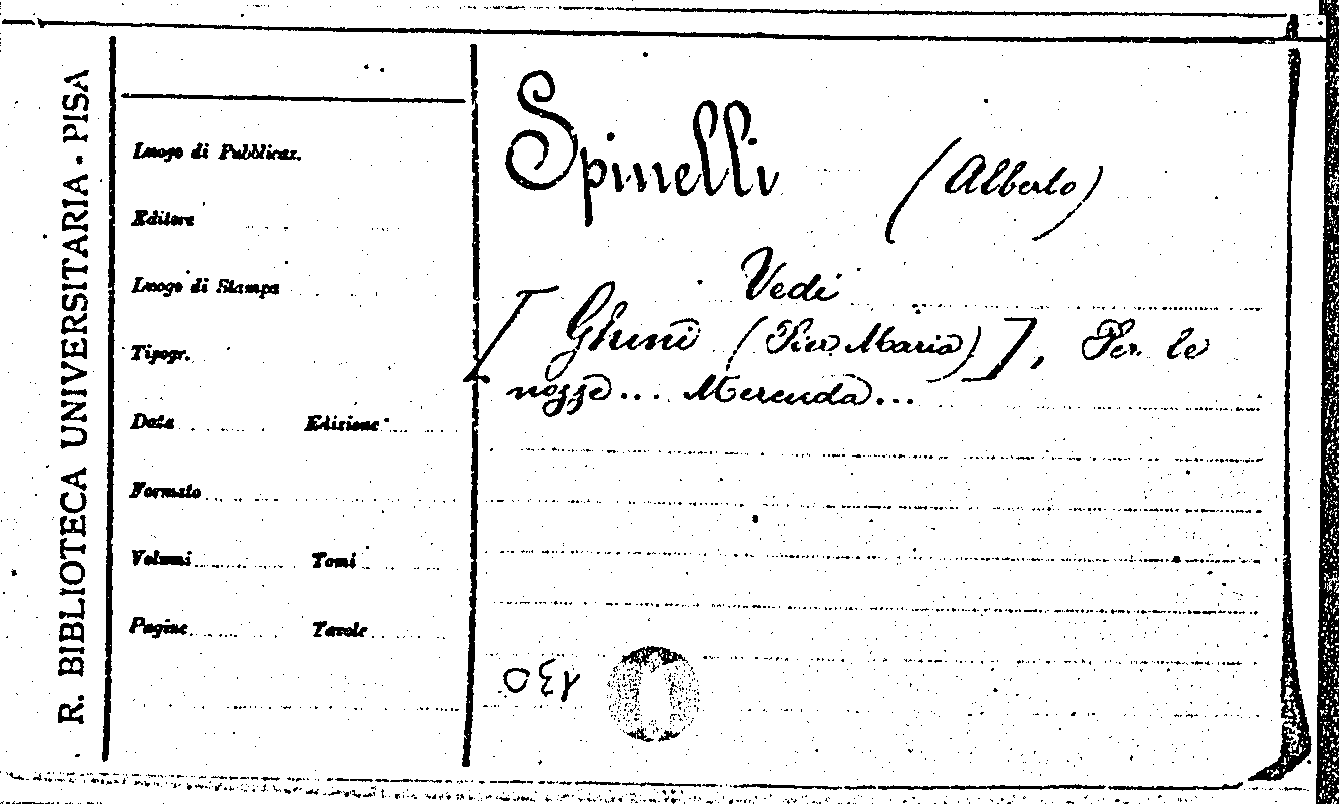 R. BIBLIOTECA UNIVERSITARIA - PISA
Luogo di Pubblicaz.
Editore
Luogo di Stampa
Tipogr.
Data Edizione
Formato
Volumi Tomi
Pagine Tavole
Spinelli (Alberto)
Vedi
[Ghini (Pier Maria)], Per le
nozze... Merenda...
130